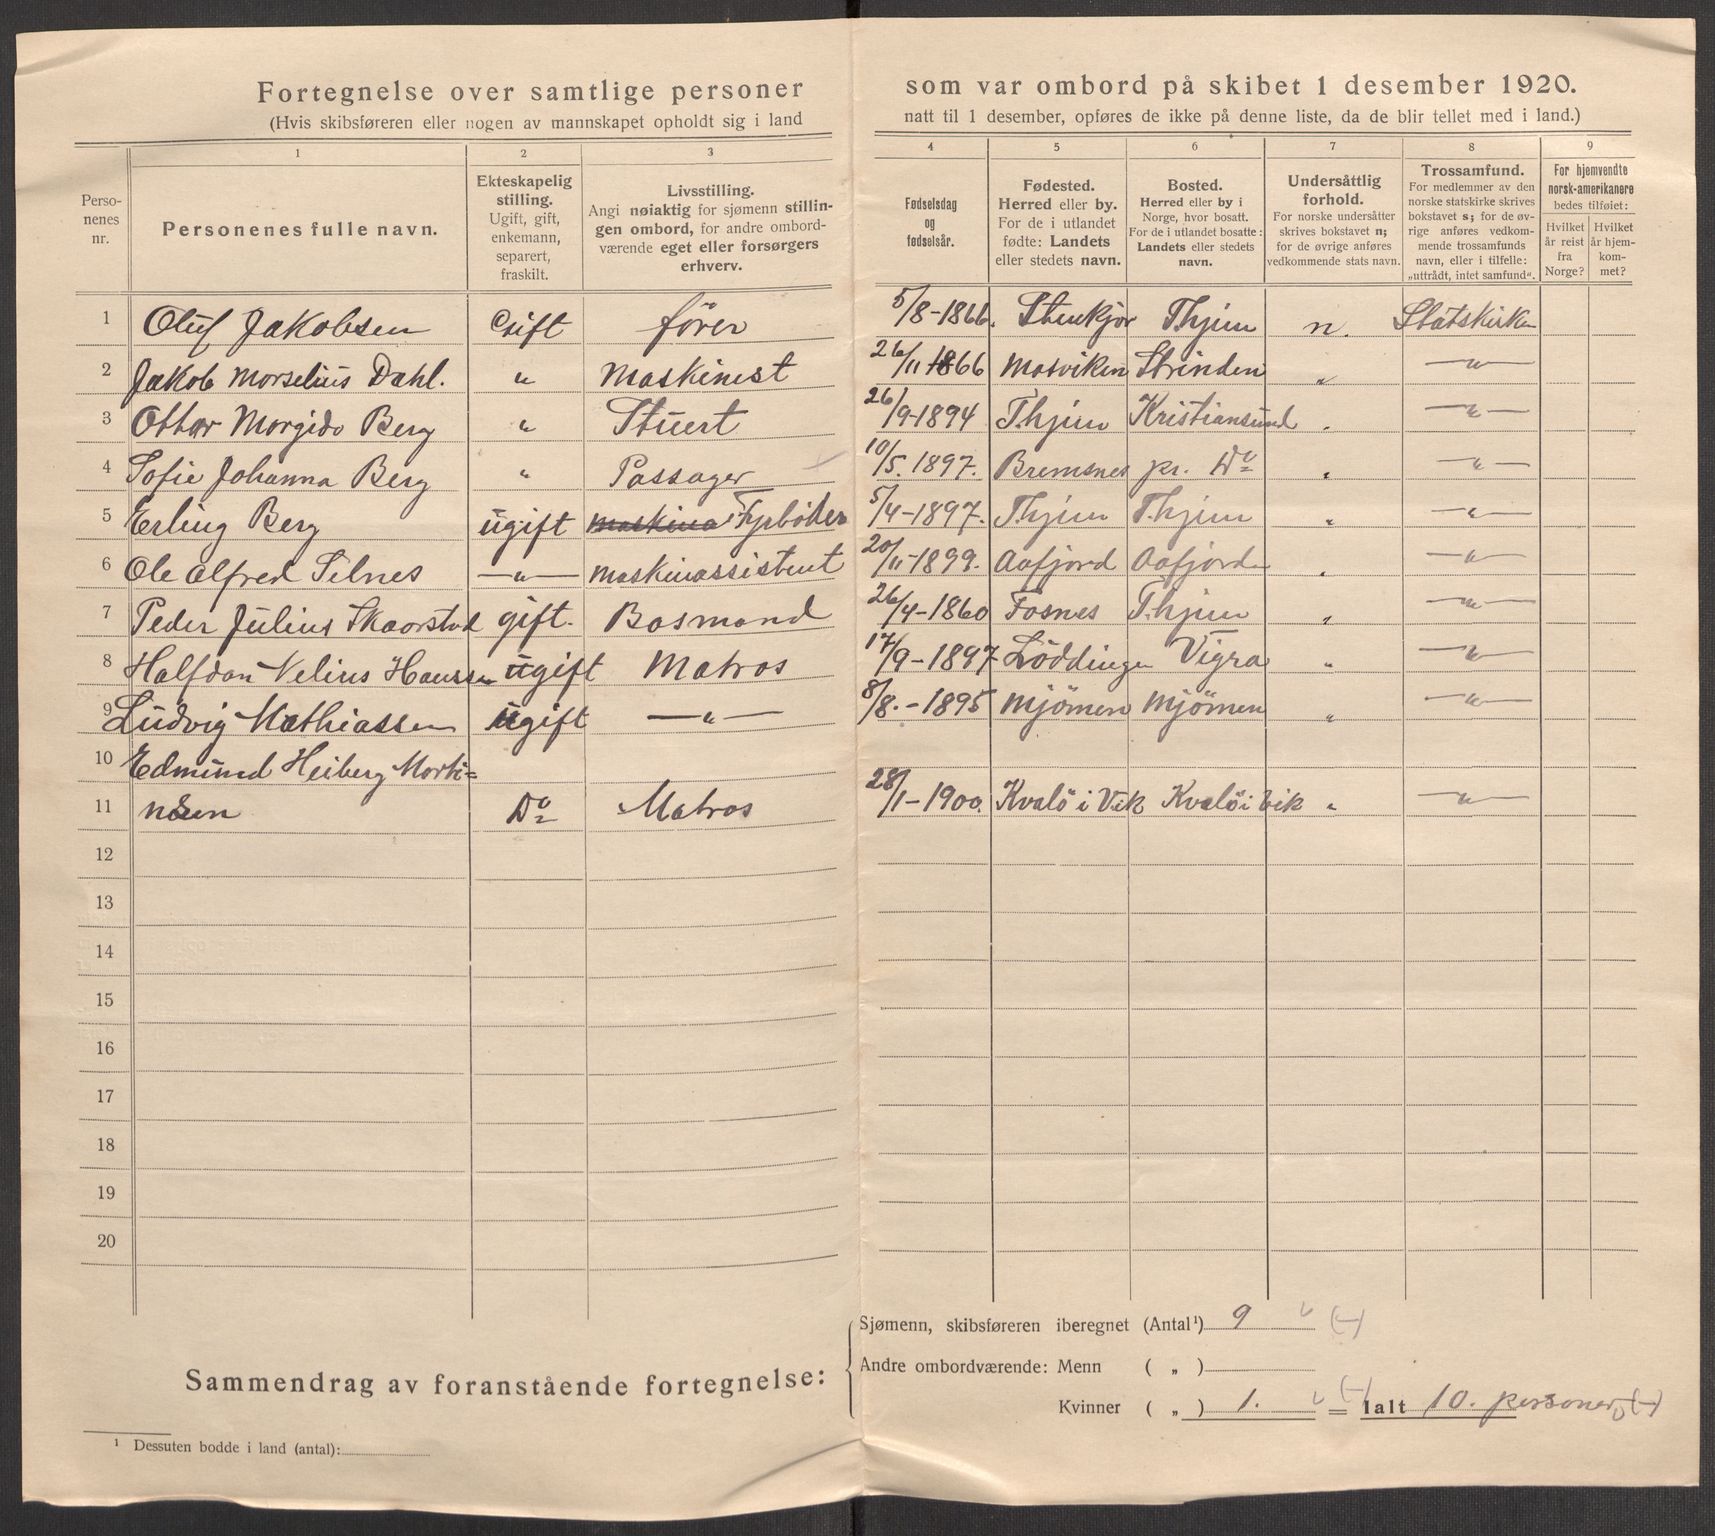 Fortegnelse over samtlige personer som var ombord på skibet 1 desember 1920.
(Hvis skibsføreren eller nogen av mannskapet opholdt sig i land natt til 1 desember, opføres de ikke på denne liste, da de blir tellet med i land.)
1 2 3 4 5 6 7 8 9
Perso-
nenes
nr.
Personenes fulle navn.
Ekteskapelig
stilling.
Ugift, gift,
enkemann,
separert,
fraskilt.
Livsstilling.
Angi nøiaktig for sjømenn stillin-
gen ombord, for andre ombord-
værende eget eller forsørgers
erhverv.
Fødselsdag
og
fødselsår.
Fødested.
Herred eller by.
For de i utlandet
fødte: Landets
eller stedets navn.
Bosted.
Herred eller by i
Norge, hvor bosatt.
For de i utlandet bosatte:
Landets eller stedets
navn.
Undersåttlig
forhold.
For norske undersåtter
skrives bokstavet n;
for de øvrige anføres
vedkommende stats navn.
Trossamfund.
For medlemmer av den
norske statskirke skrives
bokstavet s; for de øv-
rige anføres vedkom-
mende trossamfunds
navn, eller i tilfelle:
„uttrådt, intet samfund".
For hjemvendte
norsk-amerikanere
bedes tilføiet:
Hvilket
år reist
fra
Norge?
Hvilket
år hjem-
kom-
met?
1 Oluf Jakobsen Gift fører 5/8-1866. Stenkjær Thjem n. Statskirken
2 Jakob Morselius Dahl. " Maskinist 26/11 1866 Mosviken Strinden " —"—
3 Ottar Morgido Berg " Stuert 26/9-1894 Thjem Kristiansund . —"—
4 Sofie Johanna Berg " Passager 10/5. 1897. Bremsnes pr. Do " —"—
5 Erling Berg ugift maskina Fyrbøder 5/4-1897. Thjem Thjem " —"—
6 Ole Alfred Selnes —"— Maskinassistent 20/11-1899. Aafjord Aafjorden " —"—
7 Peder Julius Skaorstad gift. Bosmand 26/4-1860 Fosnes Thjem " —"—
8 Halfdan Nelius Hanssen ugift Matros 17/9-1897 Löddingen Vigra " —"—
9 Ludvig Mathiassen ugift —"— 8/8.-1895 Mjömen Mjömen " —"—
10 Edmund Heiberg Morti=
11 nsen Do Matros 28/1-1900. Kvalö i Vik Kvalö i Vik " —"—
12
13
14
15
16
17
18
19
20
Sammendrag av foranstående fortegnelse:
Sjømenn, skibsføreren iberegnet (Antal¹) 9 (-)
Andre ombordværende: Menn ( „ )
Kvinner ( „ ) 1. (-) = Ialt 10. personer (-)
¹ Dessuten bodde i land (antal):